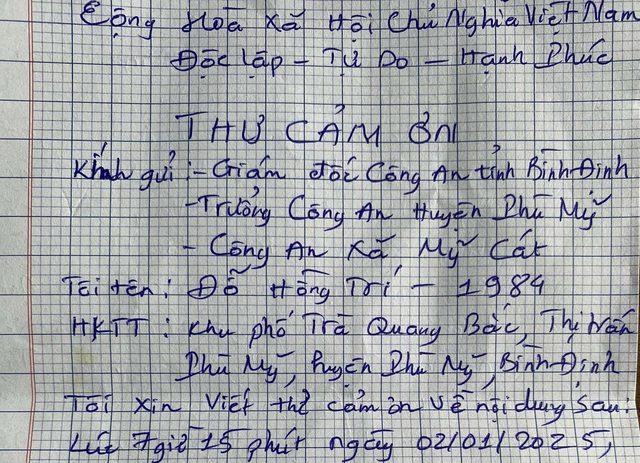 Cộng Hoà Xã Hội Chủ Nghĩa Việt Nam
Độc lập - Tự Do - Hạnh Phúc
THƯ CẢM ƠN
Kính gửi: - Giám đốc Công An tỉnh Bình-Định
- Trưởng Công An Huyện Phù Mỹ
- Công An Xã Mỹ Cát
Tôi tên: Đỗ Hồng Trí - 1984
HKTT: Khu phố Trà Quang Bắc, Thị trấn
Phù Mỹ, huyện Phù Mỹ, Bình-Định
Tôi xin viết thư cảm ơn về nội dung sau:
Lúc 7 giờ 15 phút ngày 02/01/2025,